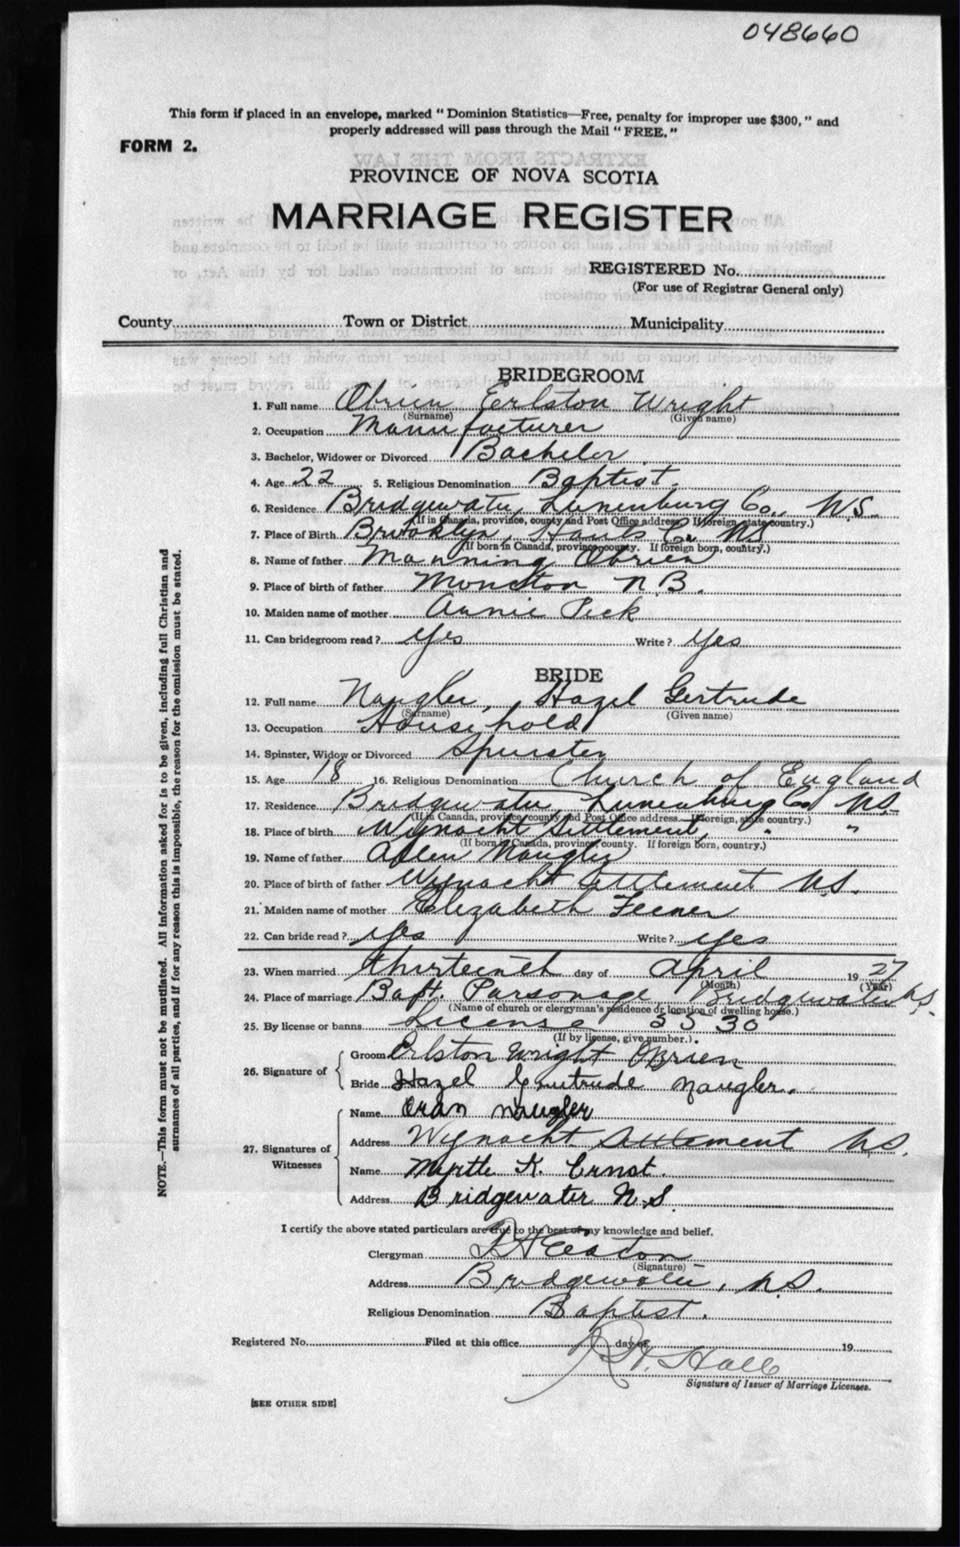 048660
This form if placed in an envelope, marked "Dominion Statistics—Free, penalty for improper use $300," and
properly addressed will pass through the Mail "FREE."
FORM 2.
PROVINCE OF NOVA SCOTIA
MARRIAGE REGISTER
REGISTERED No.
(For use of Registrar General only)
County Town or District Municipality
BRIDEGROOM
1. Full name Obrien Erlston Wright
(Surname) (Given name)
2. Occupation Manufacturer
3. Bachelor, Widower or Divorced Bachelor
4. Age 22 5. Religious Denomination Baptist.
6. Residence Bridgewater, Lunenburg Co., N.S.
(If in Canada, province, county and Post Office address. If foreign, state country.)
7. Place of Birth Brooklyn, Hants Co. NS
(If born in Canada, province, county. If foreign born, country.)
8. Name of father Manning Obrien
9. Place of birth of father Moncton N.B.
10. Maiden name of mother Annie Peck
11. Can bridegroom read? Yes Write? Yes
BRIDE
12. Full name Naugler, Hazel Gertrude
(Surname) (Given name)
13. Occupation Household
14. Spinster, Widow or Divorced Spinster
15. Age 18 16. Religious Denomination Church of England
17. Residence Bridgewater, Lunenburg Co N.S.
(If in Canada, province, county and Post Office address—If foreign, state country.)
18. Place of birth Wynacht Settlement, " "
(If born in Canada, province, county. If foreign born, country.)
19. Name of father Allen Naugler
20. Place of birth of father Wynacht Settlement N.S.
21. Maiden name of mother Elizabeth Feener
22. Can bride read? Yes Write? Yes
23. When married thirteenth day of April 1927
(Month) (Year)
24. Place of marriage Bapt. Parsonage Bridgewater N.S.
(Name of church or clergyman's residence or location of dwelling house.)
25. By license or banns License 3530
(If by license, give number.)
26. Signature of
Groom Erlston Wright OBrien
Bride Hazel Gertrude Naugler.
27. Signatures of Witnesses
Name Oran Naugler
Address Wynacht Settlement N.S.
Name Myrtle K. Ernst.
Address Bridgewater N.S.
I certify the above stated particulars are true to the best of my knowledge and belief.
Clergyman Eaton
(Signature)
Address Bridgewater, N.S.
Religious Denomination Baptist.
Registered No. Filed at this office day of 19
Hall
Signature of Issuer of Marriage Licenses.
[SEE OTHER SIDE]
NOTE.—This form must not be mutilated. All information asked for is to be given, including full Christian and
surnames of all parties, and if for any reason this is impossible, the reason for the omission must be stated.